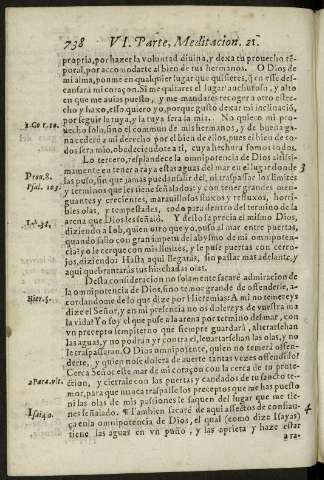 738 VI. Parte, Meditacion. 21.
propria, por hazer la voluntad diuina, y dexa tu prouecho tẽ-
poral, por accomodarte al bien de tus hermanos. O Dios de
mi alma, ponme en qualquier lugar que quisieres, q̃ en esse des-
cansarà mi coraçon. Si me quitares el lugar anchuroso, y alto
en que me auias puesto, y me mandares recoger a otro estre-
cho y baxo, esso quiero yo, porque gusto dexar mi inclinaciõ,
por seguir la tuya, y la tuya serà la mia. No quiero mi pro-
1.Cor.10. uecho solo, sino el commun de mis hermanos, y de buena ga-
na cederè a mi derecho por el bien de ellos, pues el bien de to-
dos serà mio, obedeciendote a ti, cuya hechura somos todos.
Lo tercero, resplandece la omnipotencia de Dios altissi-
mamente en tener a raya estas aguas del mar en el lugar donde 3
Prou.8. las puso, sin que jamàs puedan salir del, ni traspassar los limites
Psal. 103. y terminos que les tiene señalados: y con tener grandes men-
guantes y crecientes, marauillosos fluxos y refluxos, horri-
bles olas, y tempestades, todo para dentro del termino de la
arena que Dios les señalò. Y desto se precia el mismo Dios,
Iob.38. diziendo a Iob, quien otro que yo, puso al mar entre puertas,
quando salio con gran impetu del abysmo de mi omnipoten-
cia? yo le cerquè con mis limites, y le puse puertas con cerro-
jos, diziendo: Hasta aqui llegaràs, sin passar mas adelante, y
aqui quebrantaràs tus hinchadas olas.
Desta consideracion no solamente sacarè admiracion de
la omnipotencia de Dios, sino temor grande de offenderle, a-
Hier.5. cordandome de lo que dize por Hieremias: A mi no temereys
dize el Señor, y en mi presencia no os dolereys de vuestra ma
la vida? Yo soy el que puse a la arena por termino del mar, con
vn precepto sempiterno que siempre guardarà, alterarsehan
las aguas, y no podran yr contra el, leuantarsehan las olas, y no
le traspassaran. O Dios omnipotente, quien no temerà offen-
derte, y quien no se dolerà de auerte tantas vezes offendido?
Cerca Señor este mar de mi coraçon con la cerca de tu prote-
2.Para.vlt. ction, y cierrale con las puertas y candados de tu sancto te-
mor, para que nunca traspasse los preceptos que me has puesto
ni las olas de mis passiones le saquen del lugar que me tie-
Isai.40. nes señalado. ¶ Tambien sacarè de aqui affectos de confian- 4
ça en la omnipotencia de Dios, el qual (como dize Isayas)
tiene las aguas en vn puño, y las aprieta y haze estar
a ra-